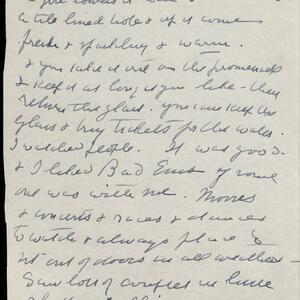 a tile lined hole & up it comes
fresh & sparkling & warm.
& you take it out on the promenade
& keep it as long as you like - then
return the glass. you can keep the
glass & buy tickets for the water.
I watched people. It was good -
& I liked Bad Ems if some
one was with me. Movies
& concerts & races & dances
to watch & always place to
sit out of doors in all weather -
Saw lots of couples in love